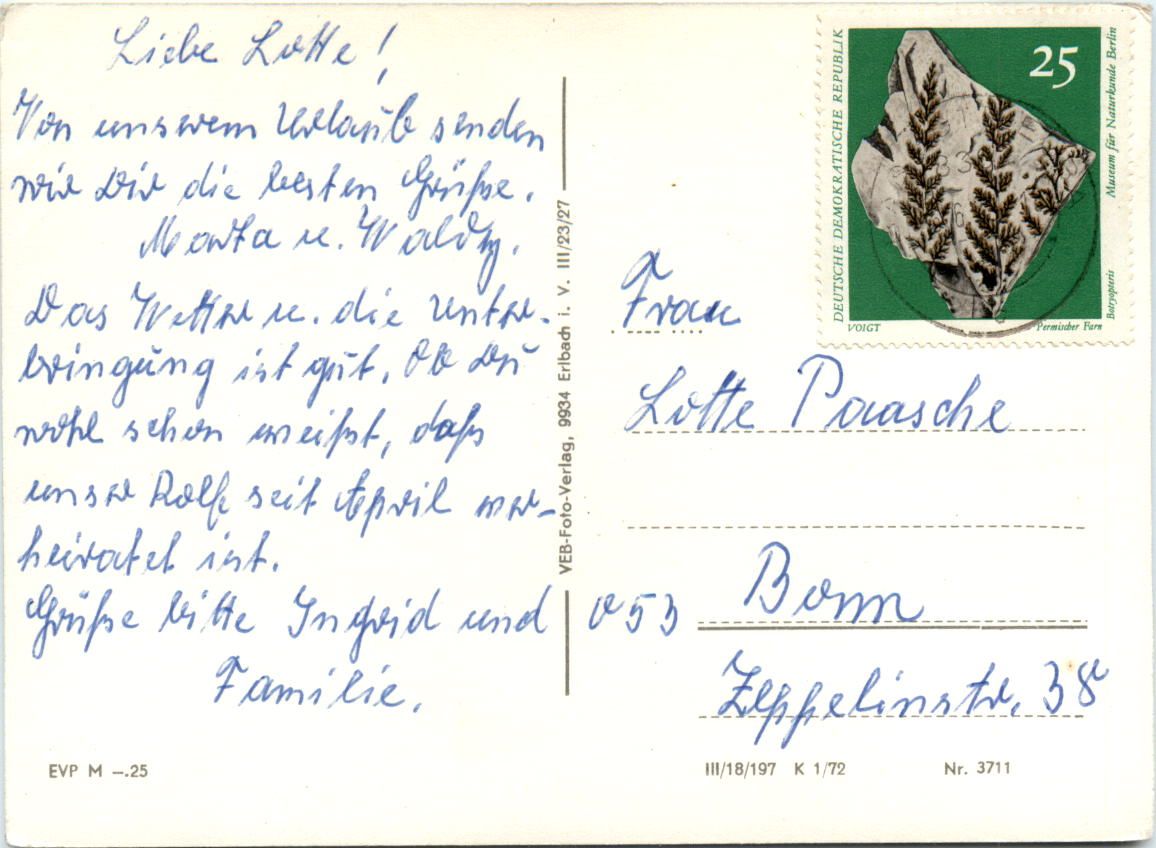 Liebe Lotte!
Von unserem Urlaub senden
wir Dir die besten Grüße.
Marta u. Waldy.
Das Wetter u. die Unter-
bringung ist gut. Ob Du
wohl schon weißt, daß
unser Rolf seit April ver-
heiratet ist.
Grüße bitte Ingrid und
Familie.
EVP M –.25
VEB-Foto-Verlag, 9934 Erlbach i. V. III/23/27
DEUTSCHE DEMOKRATISCHE REPUBLIK
25
Museum für Naturkunde Berlin
Botryopteris
VOIGT
Permischer Farn
Frau
Lotte Paasche
053 Bonn
Zeppelinstr. 38
III/18/197 K 1/72 Nr. 3711